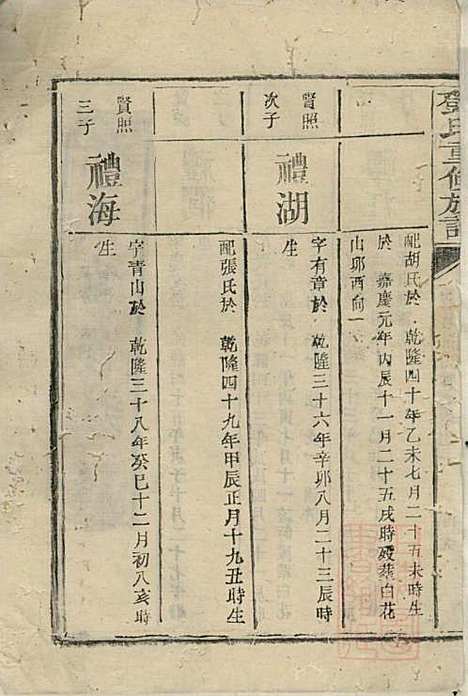 鄧氏重修族譜
配胡氏於 乾隆四十年乙未七月二十五未時生
於 嘉慶元年丙辰十一月二十五戌時歿葬白花
山邱西向一
賢照
次子
禮湖
字有章於 乾隆三十六年辛卯八月二十三辰時
生
配張氏於 乾隆四十九年甲辰正月十九丑時生
賢照
三子
禮海
字青山於 乾隆三十八年癸巳十二月初八亥時
生